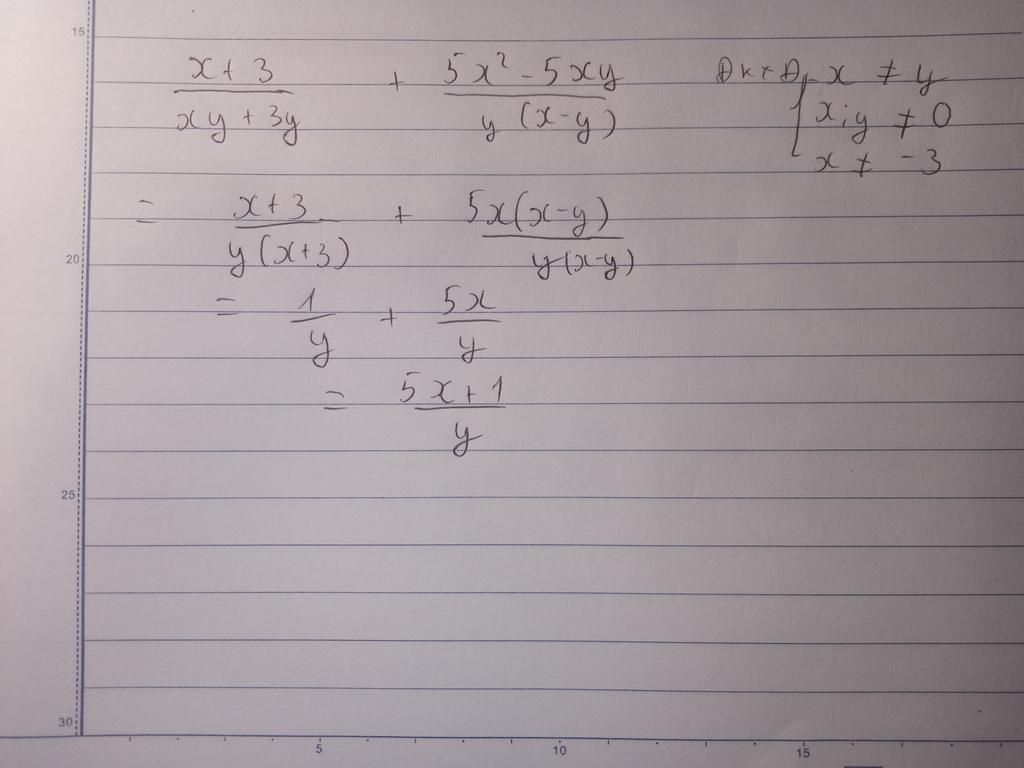 15
x + 3 / xy + 3y + 5x² - 5xy / y (x-y) ĐKXĐ { x ≠ y
x; y ≠ 0
x ≠ -3
= x + 3 / y (x+3) + 5x(x-y) / y(x-y)
20
= 1 / y + 5x / y
= 5x + 1 / y
25
30
5 10 15